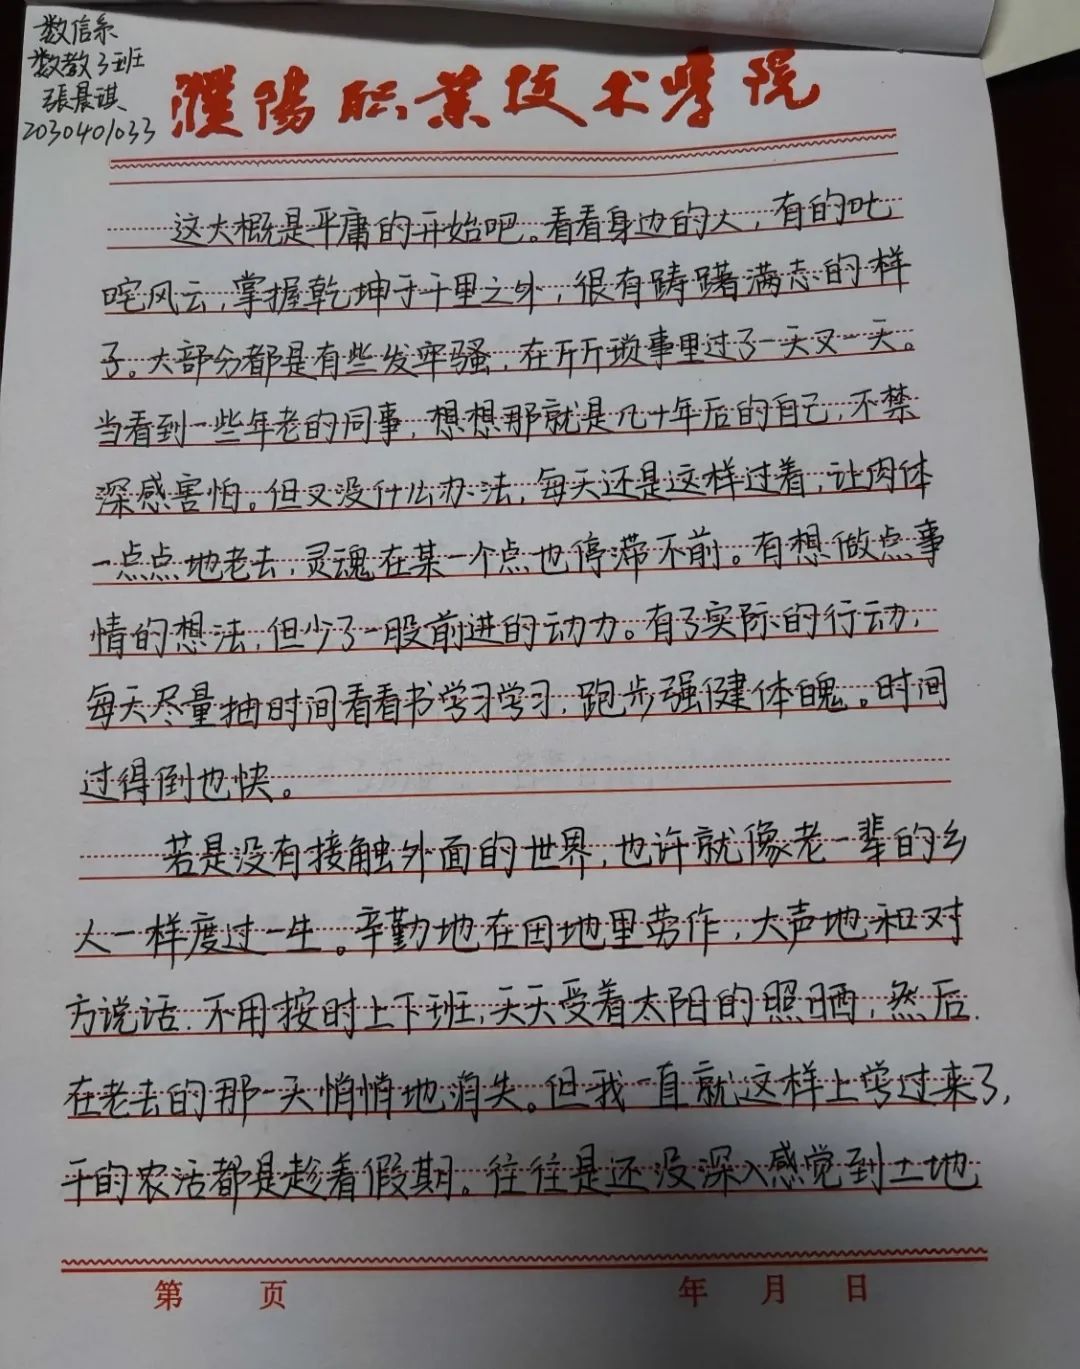 数信系
数教3班
張晨諆
2030401033
濮陽职業技术學院
这大概是平庸的开始吧。看看身边的人，有的叱
咤风云，掌握乾坤于千里之外，很有踌躇满志的样
子。大部分都是有些发牢骚，在斤斤琐事里过了一天又一天。
当看到一些年老的同事，想想那就是几十年后的自己，不禁
深感害怕。但又没什么办法，每天还是这样过着，让肉体
一点点地老去，灵魂在某一个点也停滞不前。有想做点事
情的想法，但少了一股前进的动力。有了实际的行动，
每天尽量抽时间看看书学习学习，跑步强健体魄。时间
过得倒也快。
若是没有接触外面的世界，也许就像老一辈的乡
人一样度过一生。辛勤地在田地里劳作，大声地和对
方说话，不用按时上下班，天天受着太阳的照晒，然后
在老去的那一天悄悄地消失。但我一直就这样上学过来了，
干的农活都是趁着假期。往往是还没深入感觉到土地
第 页 年 月 日